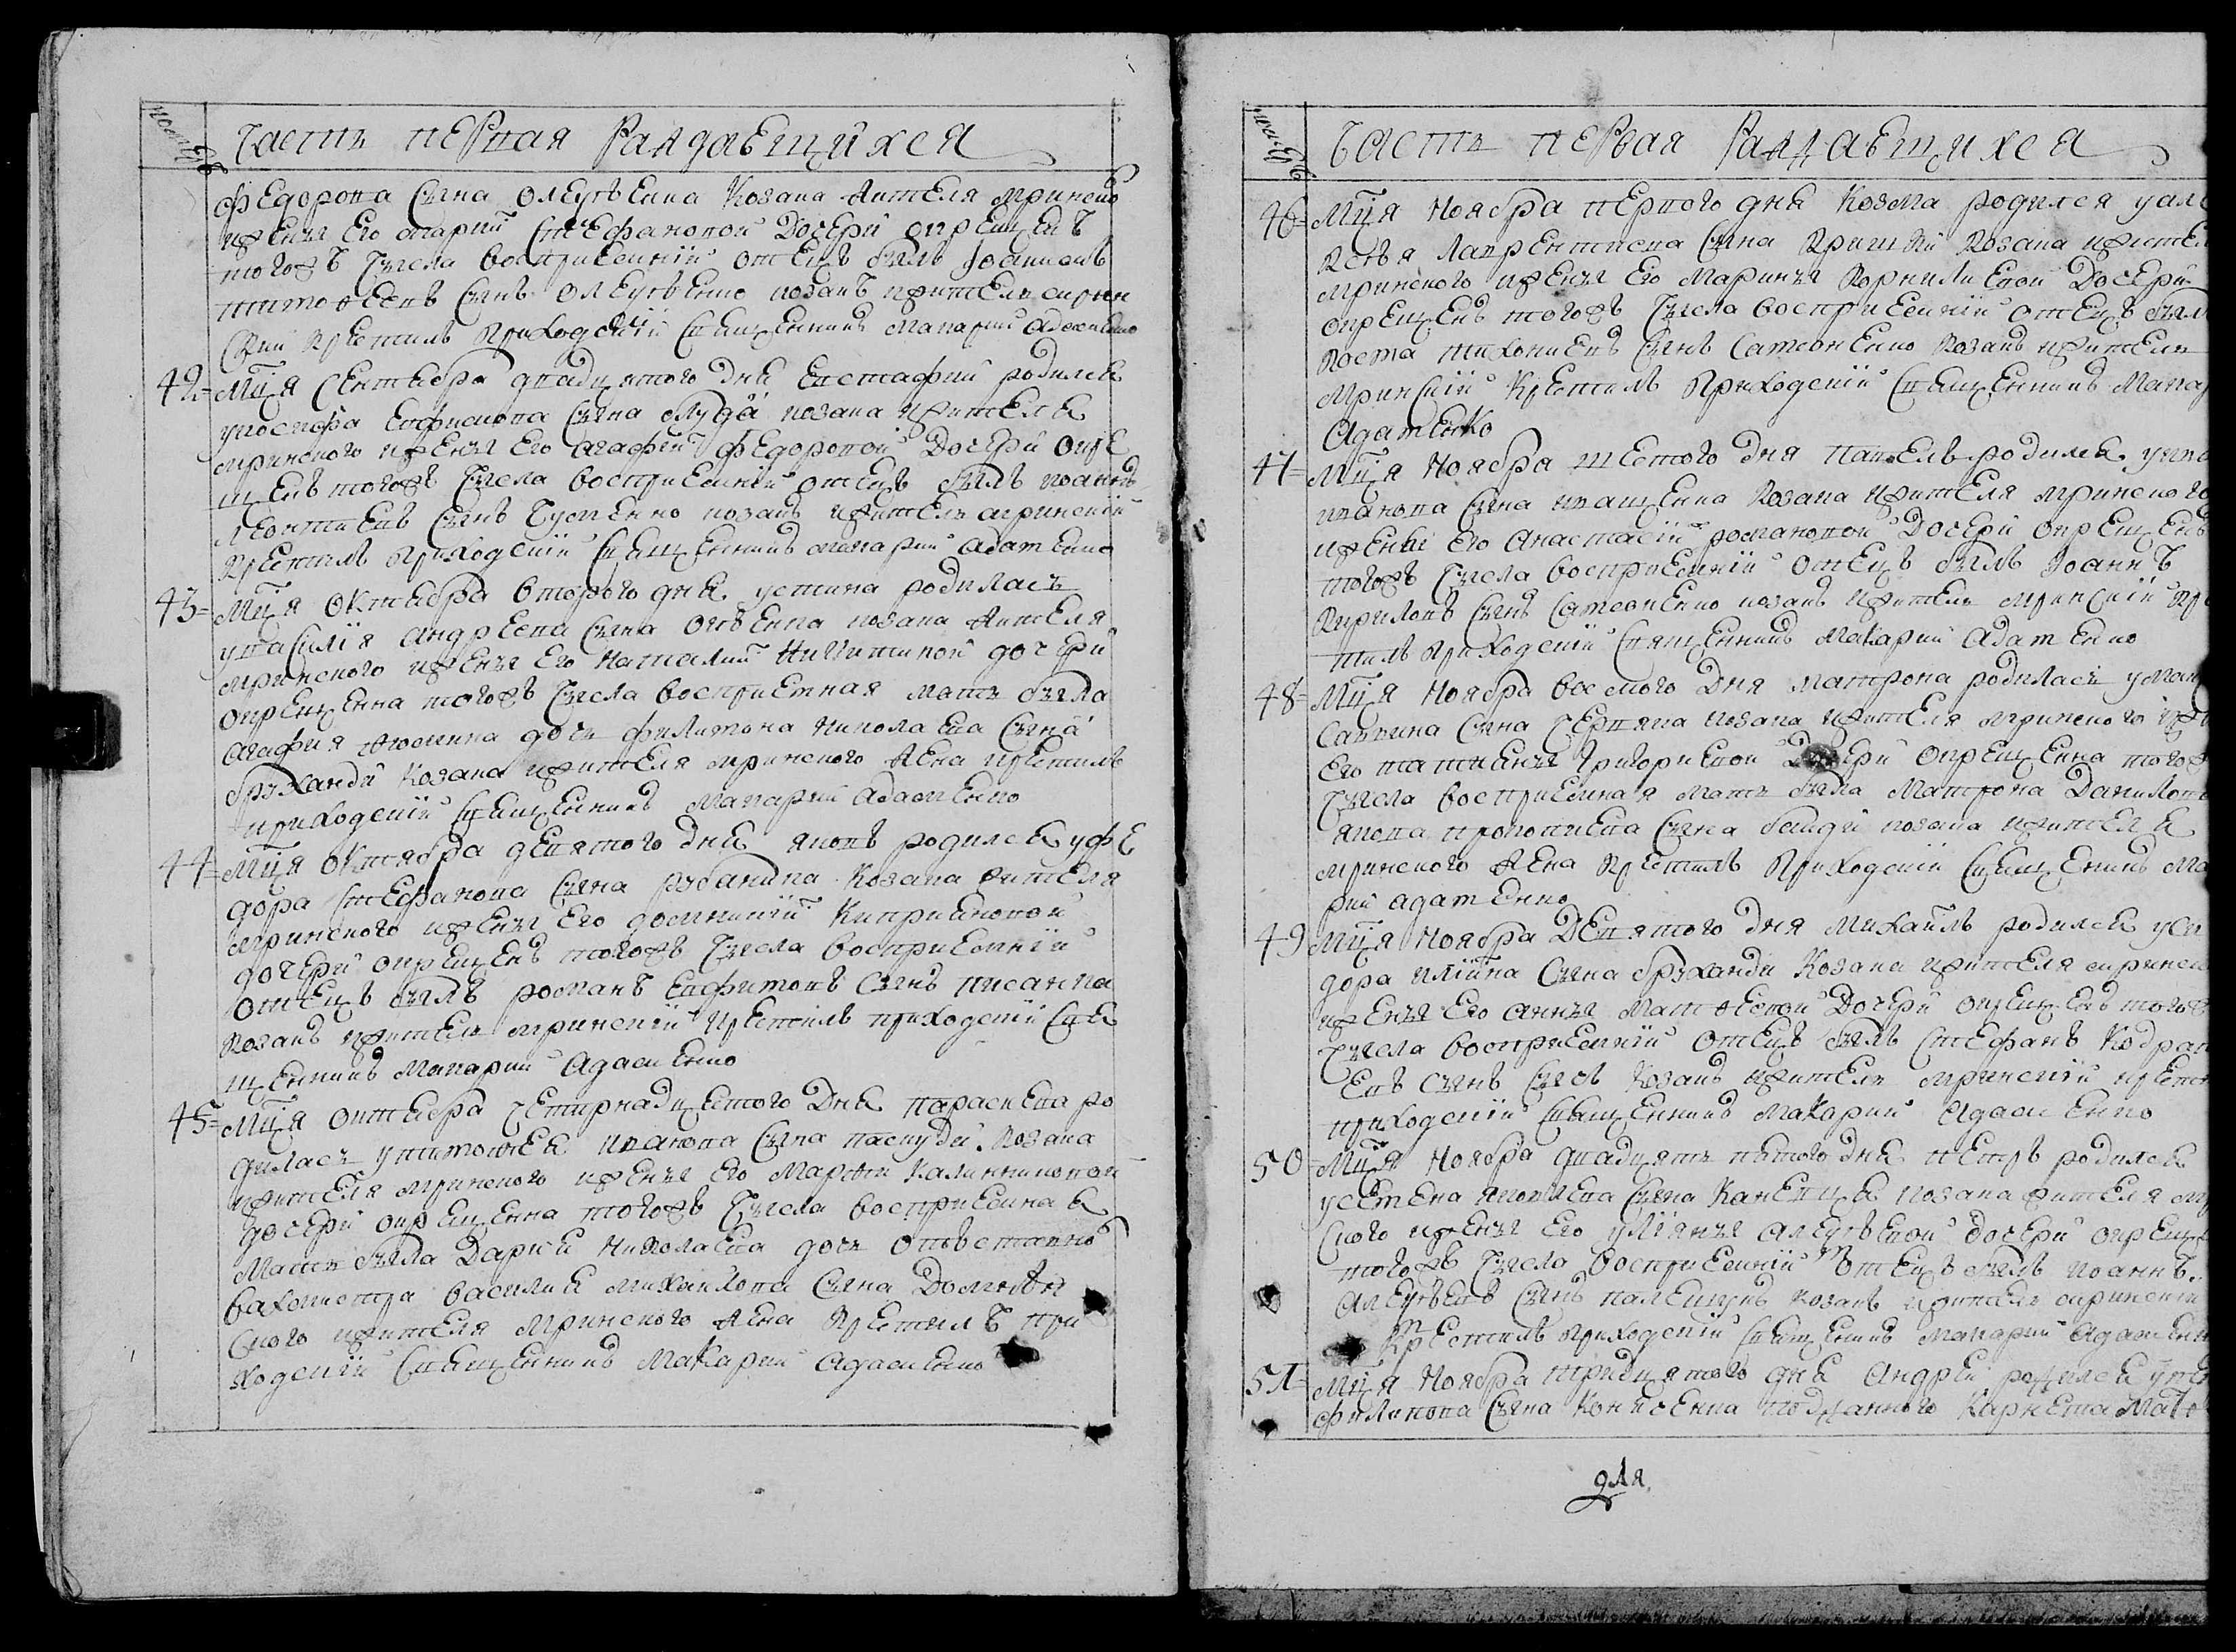 Часть первая раждаетщихся
Федорова сына Олеѯѣенка козака жителя мринско
и жены его Марии Стефановой дочери окрещенъ
тогожъ числа восприемній отецъ былъ Іоанникъ
Тимоѳеевъ сынъ Олеѯѣенко козакъ житель мрин
скій крестилъ приходскій священникъ Макарий Адаменко
42 Мц҃а сентября двадцятого дня Евстафий родился
у Иосифа Евфимова сына козака жителя
мринского и жены его Агафии Федоровой дочери окре
щенъ тогожъ числа восприемній отецъ былъ Иоаннъ
Леонтиевъ сынъ козакъ житель мринскій
крестилъ приходскій священникъ Макарий Адаменко
43 Мц҃а октября второго дня Устина родилась
у Василія Андреева сына козака жителя
мринского и жены его Наталии Никитиной дочери
окрещенна тогожъ числа восприемная мать была
Агафия Фомина дочь Филимона Николаева сына
Брѣханди козака жителя мринского жена крестилъ
приходскій священникъ Макарий Адаменко
44 Мц҃а октября девятого дня Яковъ родился у Фе
дора Стефанова сына Рубанина козака жителя
мринского и жены его Домникии Киприяновой
дочери окрещенъ тогожъ числа восприемній
отецъ былъ Романъ Евфимовъ сынъ Писанка
козакъ житель мринскій крестилъ приходскій свя
щенникъ Макарий Адаменко
45 Мц҃а октября четирнадцятого дня Параскева ро
дилась у Тимоѳея Иванова сына Паскуди козака
жителя мринского и жены его Марѳи Калинниковой
дочери окрещенна тогожъ числа восприемная
мать была Дария Николаева дочь отставного
вахмистра Василия Михайлова сына
ского жителя мринского жена крестилъ при
ходскій священникъ Макарий Адаменко
Часть первая раждаетщихся
46 Мц҃а ноября первого дня Козма родился у Але
ксѣя Лаврентиева сына Кришки козака и жител
мринского и жены его Маринѣ Корнилиевой дочери
окрещенъ тогожъ числа восприемній отецъ был
Коста Тихониевъ сынъ Самсоненко козакъ житель
мринскій крестилъ приходскій священникъ Мака
Адаменко
47 Мц҃а ноября шестого дня Павелъ родился у
Иванова сына Иващенка козака жителя мринского
и жены его Анастасіи Романовой дочери окрещенъ
тогожъ числа восприемній отецъ былъ Іоаннъ
Кириловъ сынъ Самсоненко козакъ житель мринскій кре
тилъ приходскій священникъ Макарий Адаменко
48 Мц҃а ноября восмого дня Матрона родилась у
Саввина сына Червяка козака жителя мринского и
его Татиянѣ Григориевой дочери окрещенна тогож
числа восприемная мать была Матрона Данилова
Якова Прокопиева сына козака жителя
мринского жена крестилъ приходскій священникъ Ма
рий Адаменко
49 Мц҃а ноября девятого дня Михаилъ родился у Си
дора Илііна сына Брѣханди козака жителя мринск
и жены его Аннѣ Матѳеевой дочери окрещенъ тогож
числа восприемній отецъ былъ Стефанъ Кодрат
евъ сынъ козакъ житель мринскій крести
приходскій священникъ Макарий Адаменко
50 Мц҃а ноября двадцять пятого дня Петръ родился
у Семена Яковлева сына Каневца козака жителя м
ского и жены его Улиянѣ Алеѯѣевой дочери окреще
тогожъ числа восприемній отецъ былъ Иоаннъ
Алеѯѣевъ сынъ козакъ житель мринскій
крестилъ приходскій священникъ Макарий Адаменк
51 Мц҃а ноября тридцятого дня Андрей родился у
Филипова сына подданного
для